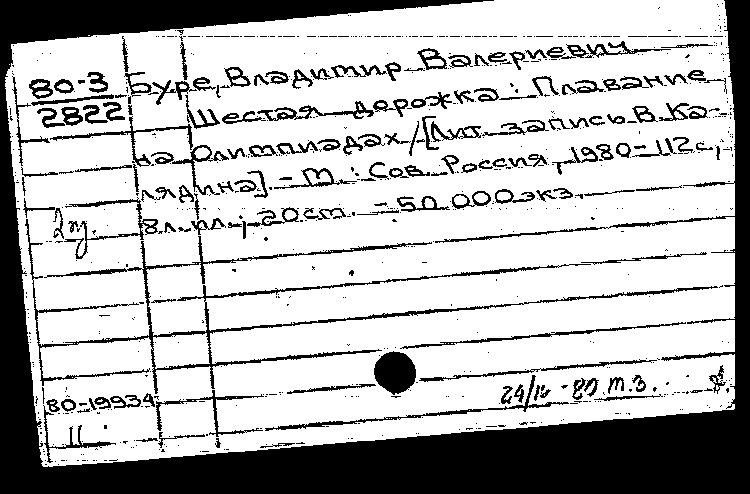 80-3
2822
Буре, Владимир Валериевич
Шестая дорожка : Плавание
на Олимпиадах / [Лит. запись В. Ка-
лядина]. - М. : Сов. Россия, 1980 - 112 с.,
8 л. ил.; 20 см. - 50 000 экз.
80-19934
11
80 М.З.